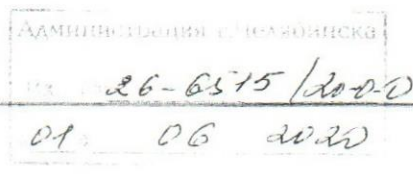 Администрация г.Челябинска
26-6515/20-0-0
01 06 2020